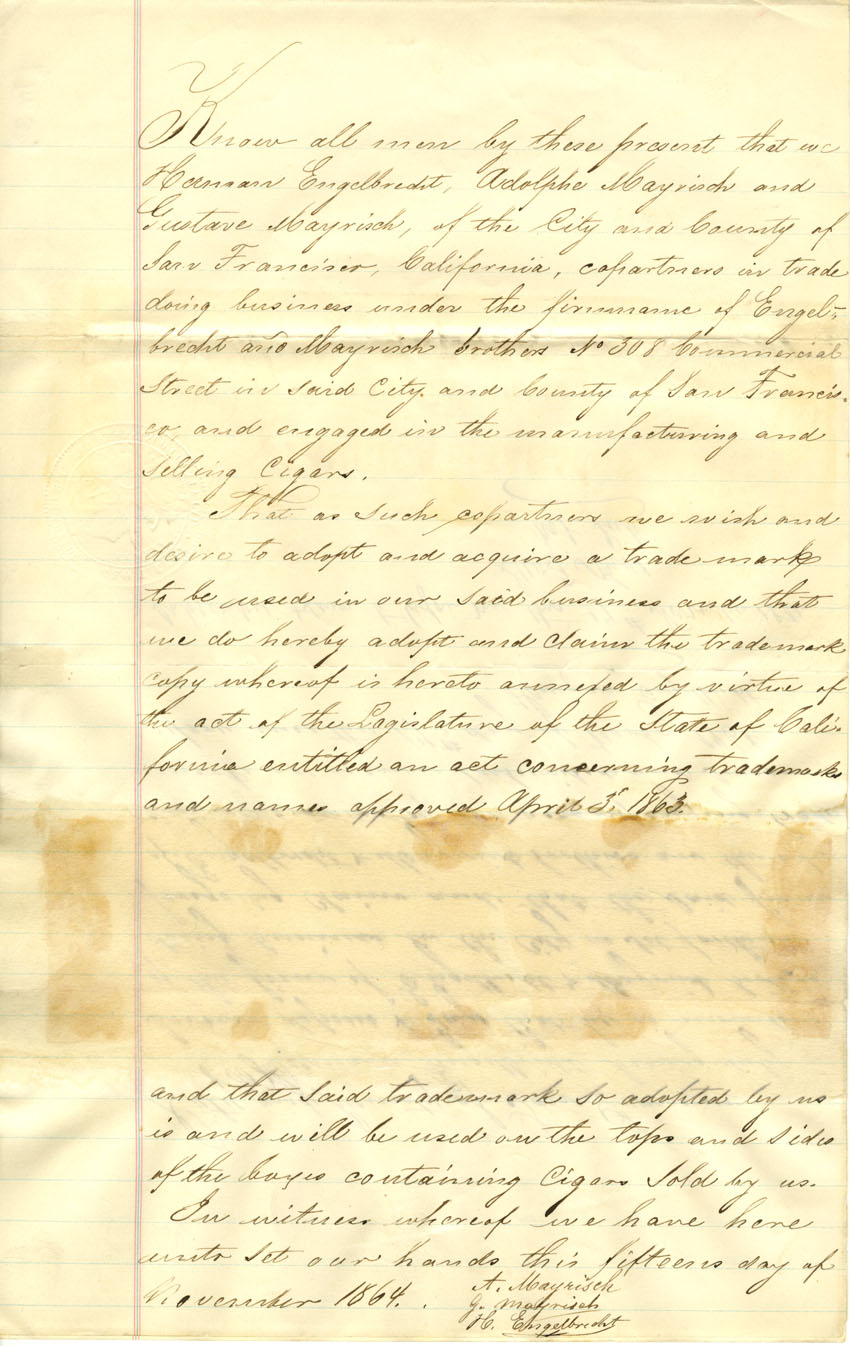 Know all men by these present that we
Herman Engelbrecht, Adolphe Mayrisch and
Gustave Mayrisch, of the City and County of
San Francisco, California, copartners in trade
doing business under the firmname of Engel-
brecht and Mayrisch brothers No 308 Commercial
Street in said City and County of San Francis-
co, and engaged in the manufacturing and
selling Cigars.
That as such copartners we wish and
desire to adopt and acquire a trade mark
to be used in our said business and that
we do hereby adopt and claim the trademark
copy whereof is hereto annexed by virtue of
the act of the Legislature of the State of Cali-
fornia entitled an act concerning trademarks
and names approved April 3d 1863.
and that said trademark so adopted by us
is and will be used on the tops and sides
of the boxes containing Cigars sold by us.
In witness whereof we have here
unto set our hands this fifteens day of
November 1864.
A. Mayrisch
G. Mayrisch
H. Engelbrecht